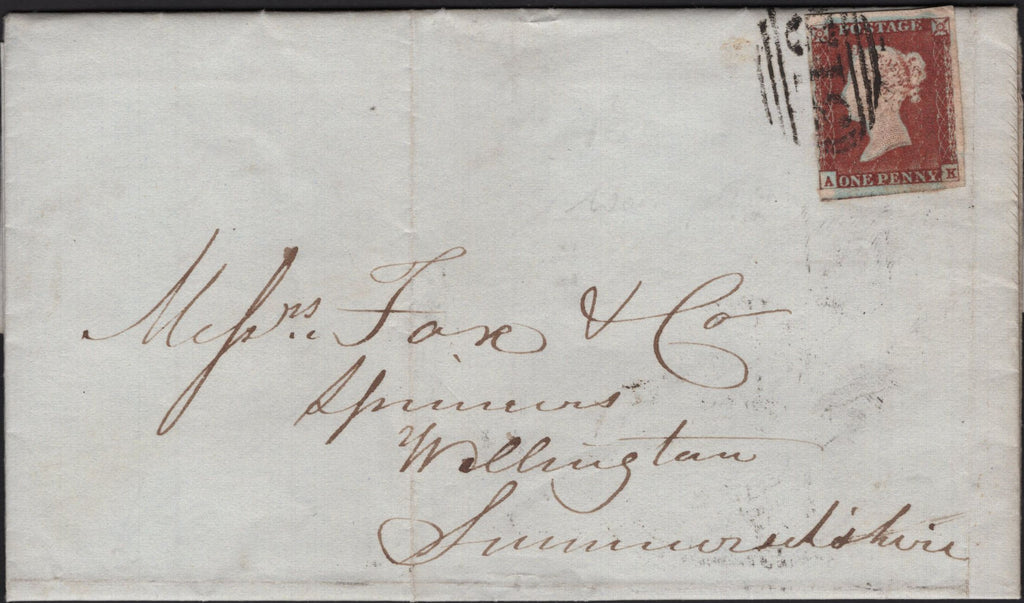 POSTAGE
A ONE PENNY. K
Messrs. Fox & Co
Spinners
Wellington
Summersetshire